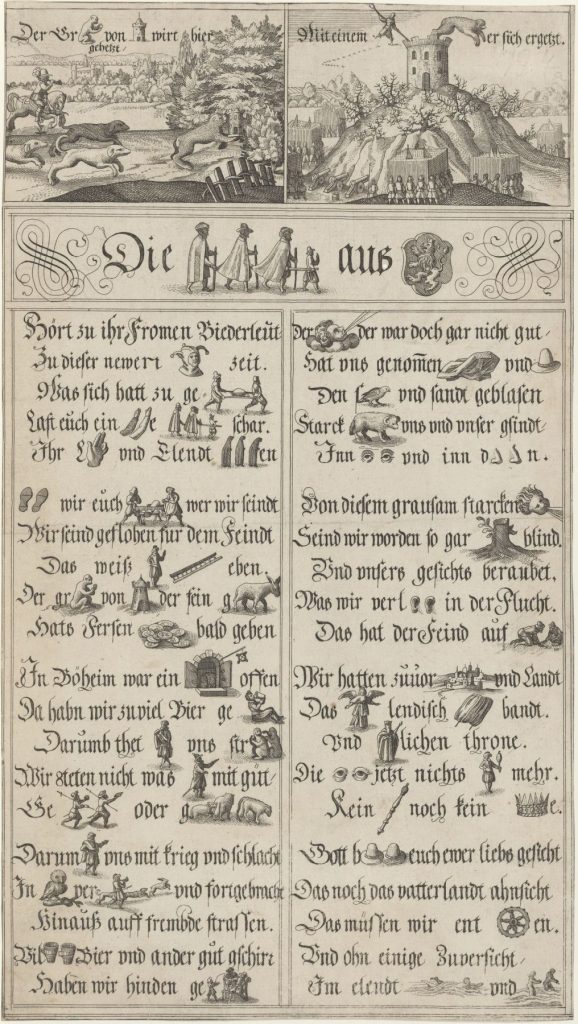 Der Gr von wirt hier
gehetzt
Mit einem er sich ergetzt.
Die aus
Hört zu ihr Fromen Biederleüt
Zu dieser newen zeit.
Was sich hatt zu ge
Last euch ein schar.
Ihr und Elendt en
wir euch wer wir seindt
Wir seind geflohen für dem Feindt
Das weiß eben.
Der gr von der sein g
Hats Fersen bald geben
In Böheim war ein offen
Da habn wir zuviel Bier ge
Darumb thet uns str
Wir steten nicht was mit güt
Ge oder g
Darum vns mit krieg vnd schlacht
In ver vnd fortgebracht
Hinauß auff frembde strassen.
Vil Bier vnd ander güt gschirr
Haben wir hinden ge
Der der war doch gar nicht gut
Hat vns genomen vnd
Den s vnd sandt geblasen
Starck vns vnd vnser gsindt
Inn vnd inn d n.
Von diesem grausam starcken
Seind wir worden so gar blind.
Vnd vnsers gesichts beraubet,
Was wir verl in der Flucht.
Das hat der Feind auf
Wir hatten zuuor vnd Landt
Das lendisch bandt.
Vnd lichen throne.
Die jetzt nichts mehr.
Kein noch kein e.
Gott b euch ewer liebs gesicht
Das noch das vatterlandt ahnsicht
Das müssen wir ent en.
Vnd ohn einige Zuversicht
Im elendt vnd